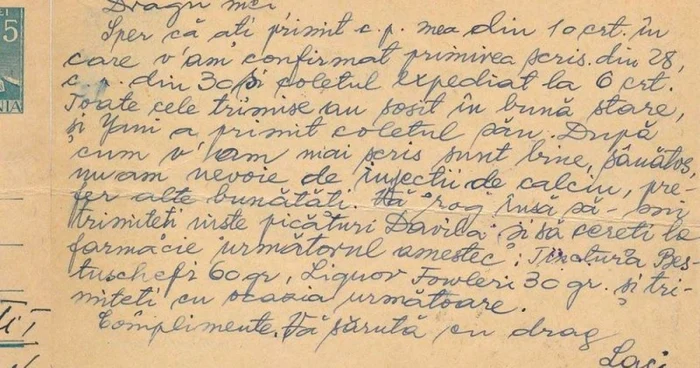 Dragii mei
Sper că ati primit c.p. mea din 10 crt. în
care v'am confirmat primirea scris. din 28,
c.p. din 30 și coletul expediat la 6 crt.
Toate cele trimise au sosit în bună stare,
și Yuni a primit coletul său. După
cum v'am mai scris sunt bine, sănătos,
nu am nevoie de injectii de calciu, pre-
fer alte bunătăti. Vă rog însă să-mi
trimiteti niste picături Davila și să cereti la
farmacie următorul amestec: Tinctura Bes-
tuscheffi 60 gr, Liquor Fowleri 30 gr. și tri-
miteti cu ocazia următoare.
Complimente. Vă sărută cu drag
Laci
5
NIA